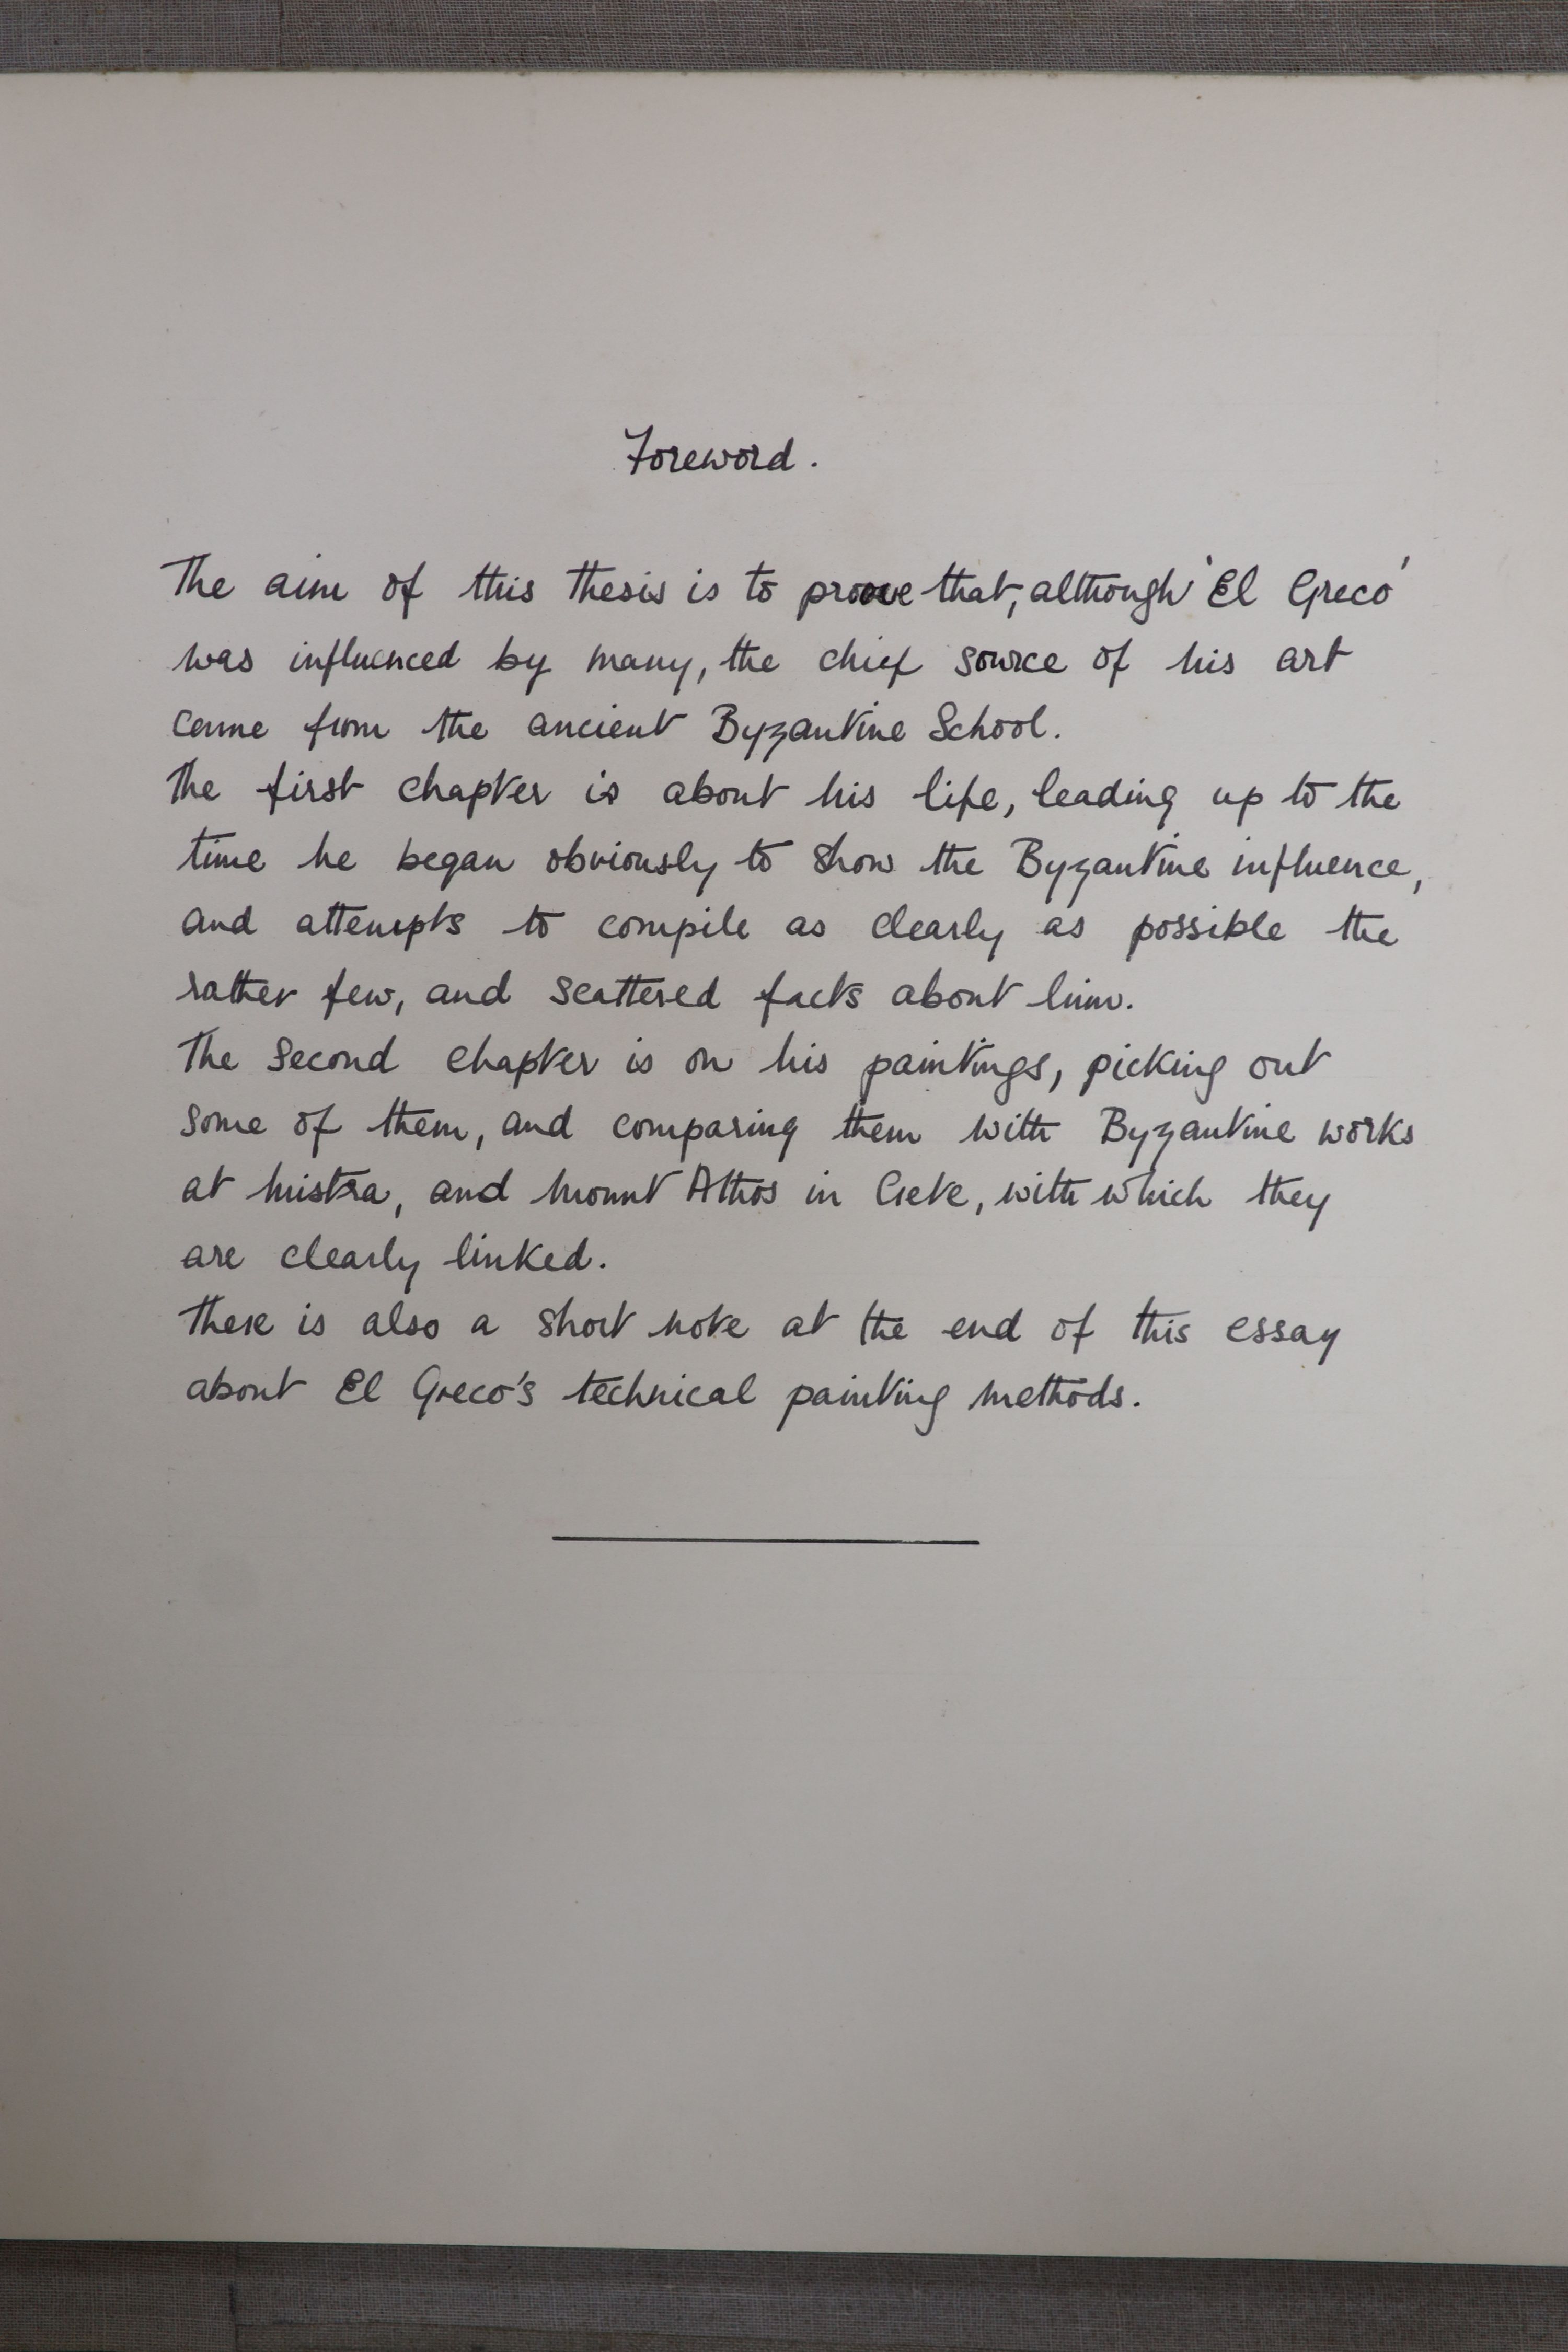 Foreword.
The aim of this thesis is to prove that, although 'El Greco'
was influenced by many, the chief source of his art
came from the ancient Byzantine School.
The first chapter is about his life, leading up to the
time he began obviously to show the Byzantine influence,
and attempts to compile as clearly as possible the
rather few, and scattered facts about him.
The second chapter is on his paintings, picking out
some of them, and comparing them with Byzantine works
at Mistra, and Mount Athos in Crete, with which they
are clearly linked.
There is also a short note at the end of this essay
about El Greco's technical painting methods.